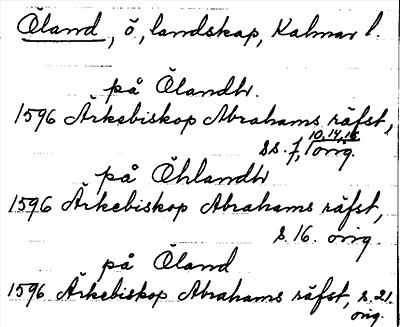 Öland, ö, landskap, Kalmar l.
på Ölandh.
1596 Ärkebiskop Abrahams räfst,
ss. 7, 10, 14, 18 orig.
på Öhlandh
1596 Ärkebiskop Abrahams räfst,
s. 16. orig.
på Öland
1596 Ärkebiskop Abrahams räfst, s. 21.
orig.